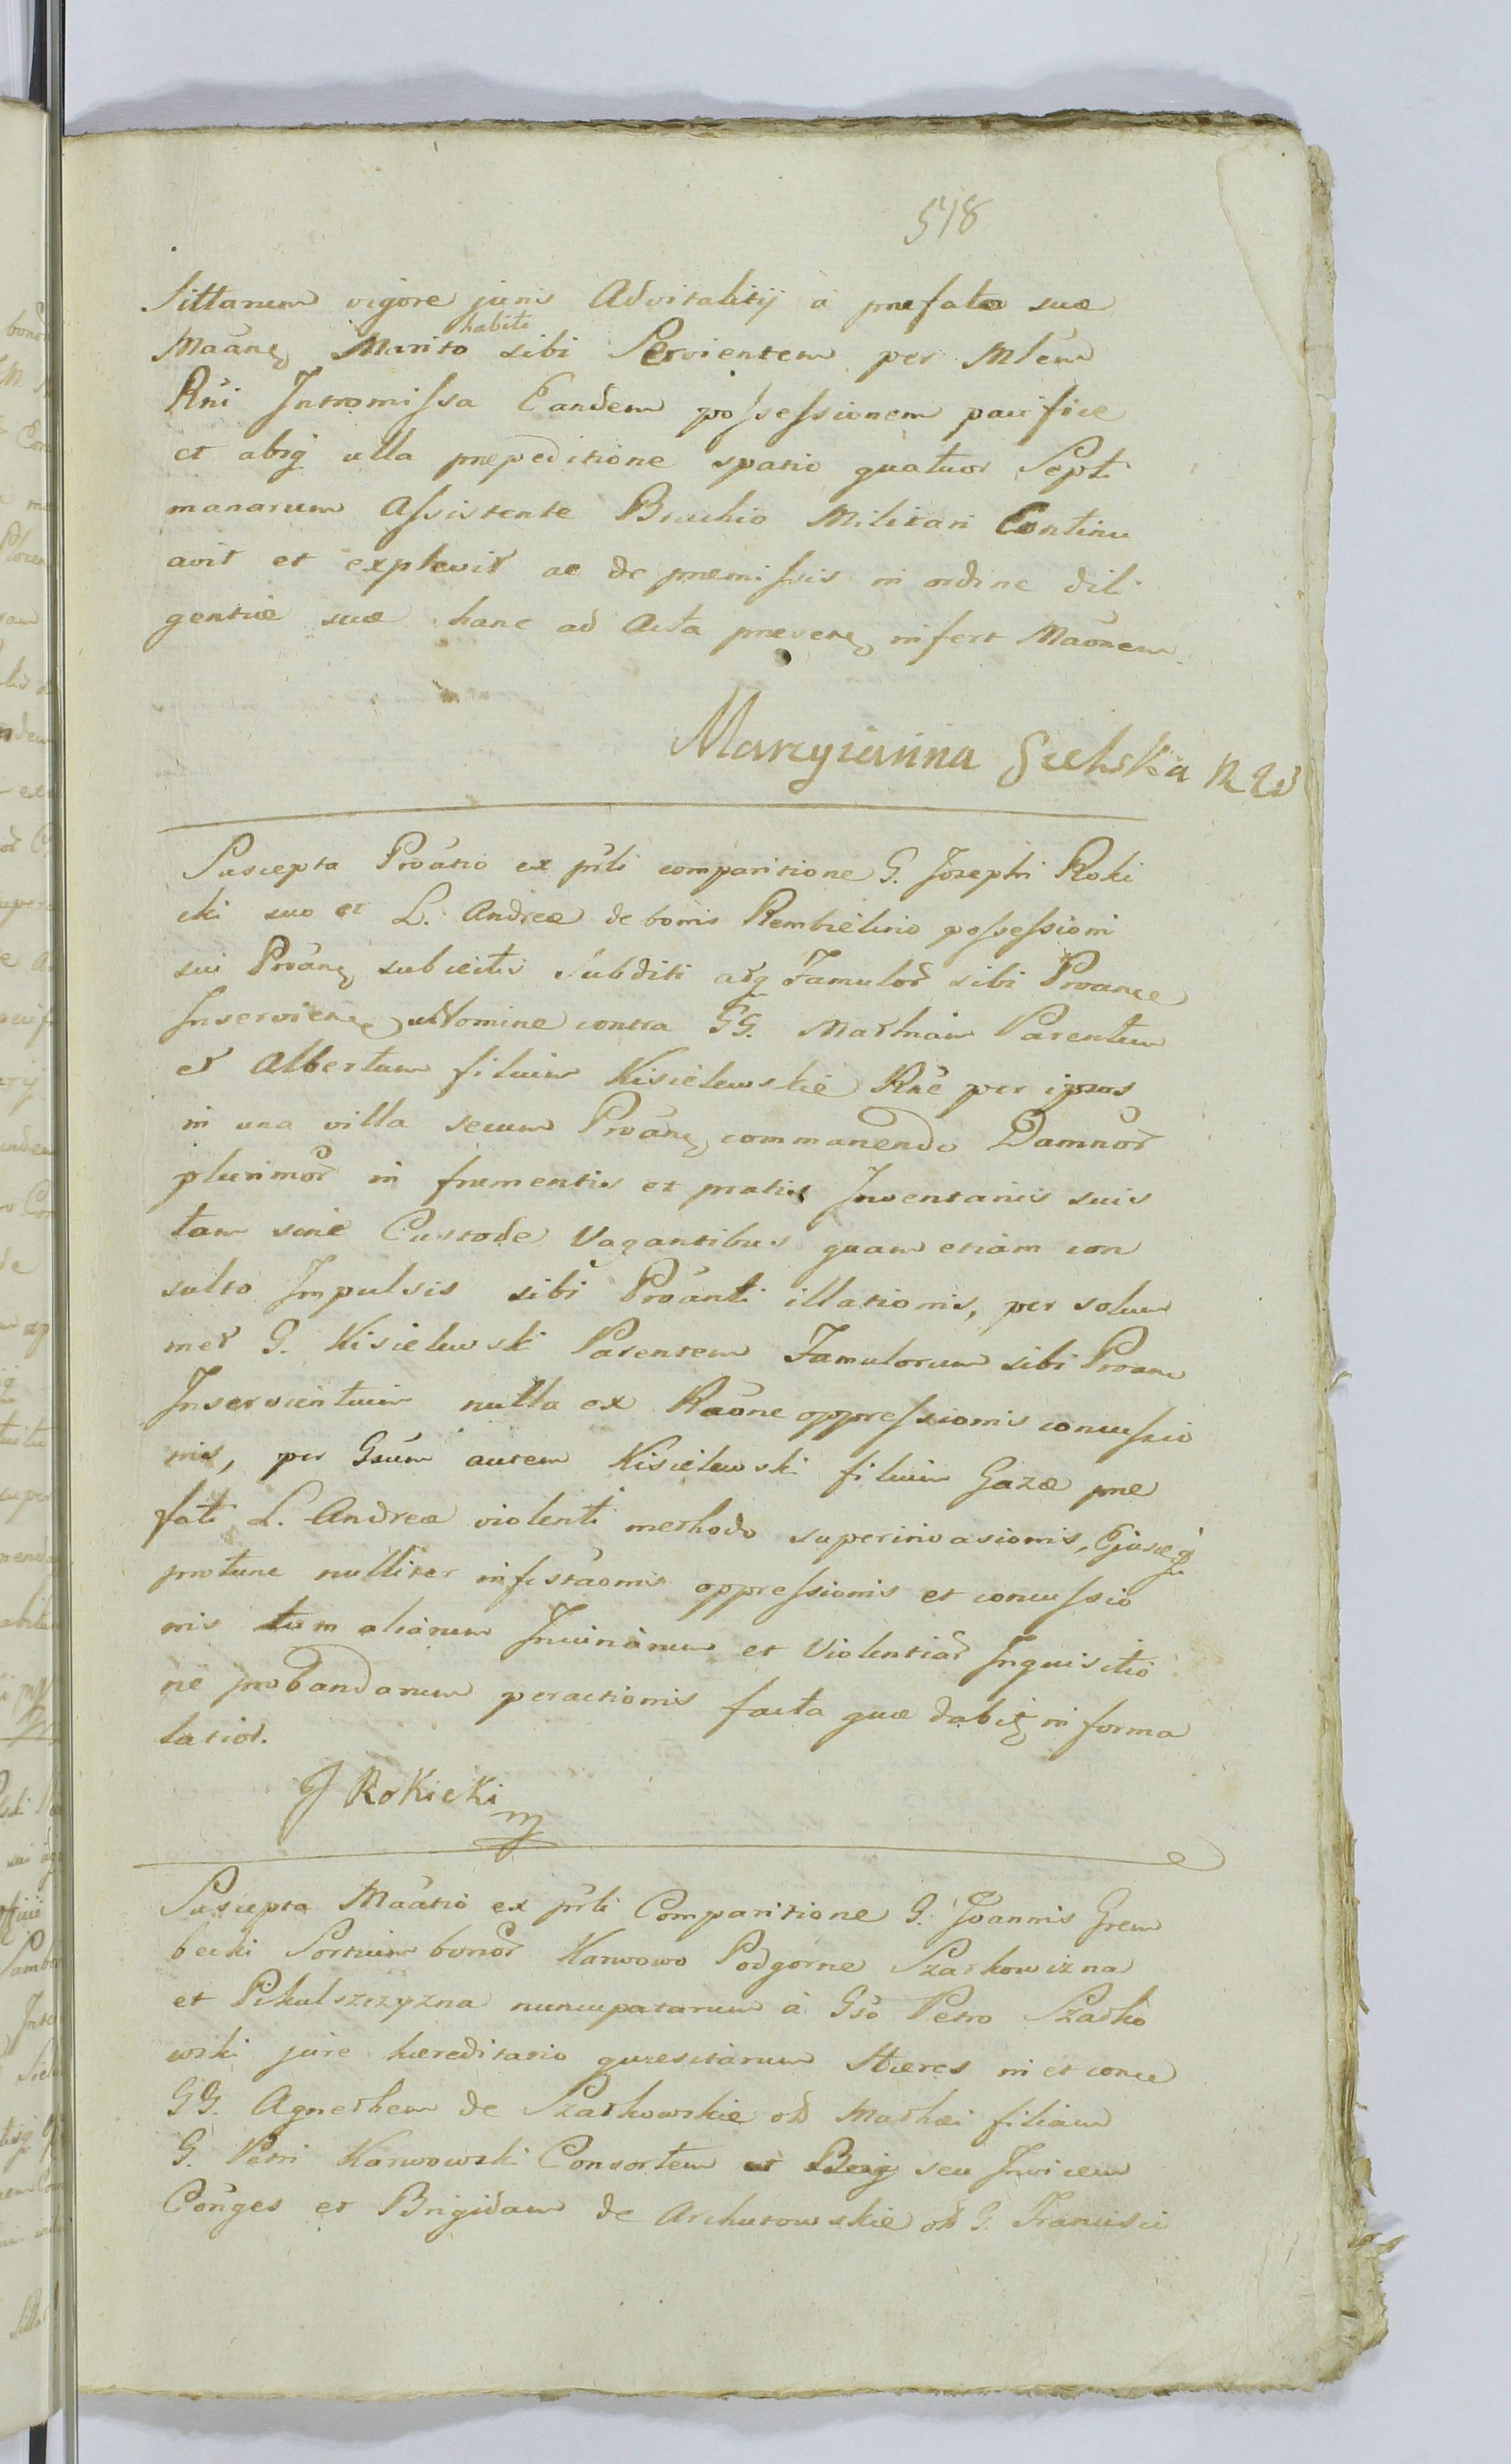 518
sittarum vigore juris Advitalitij a præfato suæ
Maãne Marito habiti sibi Servientem per Mlem
Rni Intromissa Eandem possessionem pacifice
et absq ulla præpeditione spatio quatuor Septi
manarum Assistente Brachio Militari Continu
avit et explevit ac de præmissis in ordine dili
gentiæ suæ hanc ad Acta præsens infert Maõnem.
Maryianna
Suscepta Proãtio ex pñli comparitione G. Josephi Roki
cki suo et L. Andreæ de bonis Rembielino possessioni
sui Proãne subjectis Subditi atq Famulor sibi Proance
Inservien nomine contra GG. Mathiam Parentem
et Albertum filium Kisielewskie Rñe per ipsos
in una villa secum Proãne commanendo Damnor
plurimor in frumentis et pratis Inventariis suis
tam sine Custode Vagantibus quam etiam con
sulto Impulsis sibi Proãnti illationis, per solum
met G. Kisielewski Parentem Famulorum sibi Proane
Inservientium nulla ex Raõne oppressionis concussio
nis, per Gsum autem Kisielewski filium Gazæ præ
fati L. Andreæ violenti methodo superinvasionis, Ejusq
protunc nulliter infestaõnis oppressionis et concussio
nis tum aliarum Injuriarum et Violentiar Inquisitio
ne probandarum peractionis facta quæ dabit in forma
latior.
J Rokicki
mp
Suscepta Maãtio ex pñli Comparitione G. Joannis Grem
becki Sortium bonor Karwowo Podgorne Szarkowizna
et Pikulszczyzna nuncupatarum à Gso Petro Szarko
wski jure hæreditario quæsitarum Hæres in et conce
GG. Agnethem de Szarkowskie olt Mathæi filiam
G. Petri Karwowski Consortem seu Invicem
Conges et Brigidam de Archutowskie olt G. Francisci